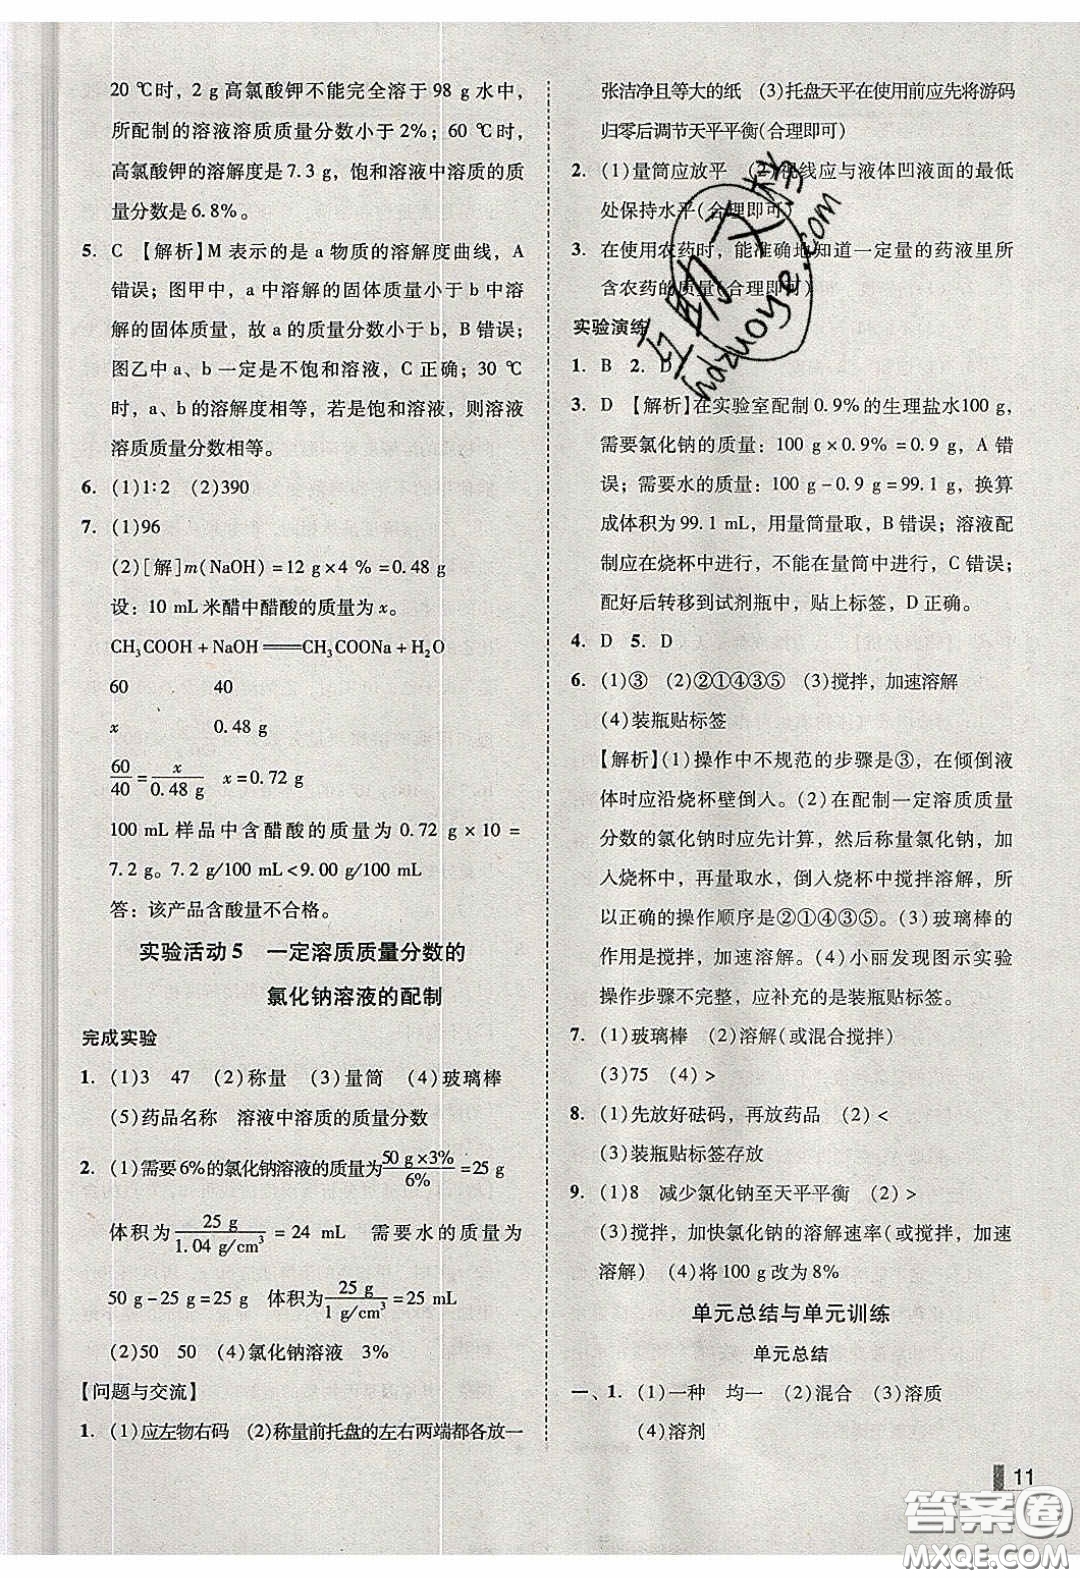 20 ℃时，2 g 高氯酸钾不能完全溶于 98 g 水中，
所配制的溶液溶质质量分数小于 2%；60 ℃时，
高氯酸钾的溶解度是 7.3 g，饱和溶液中溶质的质
量分数是 6.8%。
5. C 【解析】M 表示的是 a 物质的溶解度曲线，A
错误；图甲中，a 中溶解的固体质量小于 b 中溶
解的固体质量，故 a 的质量分数小于 b，B 错误；
图乙中 a、b 一定是不饱和溶液，C 正确；30 ℃
时，a、b 的溶解度相等，若是饱和溶液，则溶液
溶质质量分数相等。
6. (1)1∶2 (2)390
7. (1)96
(2)[解]m(NaOH)=12 g×4%=0.48 g
设：10 mL 米醋中醋酸的质量为 x。
CH₃COOH+NaOH═══CH₃COONa+H₂O
60 40
x 0.48 g
60/40=x/0.48 g x=0.72 g
100 mL 样品中含醋酸的质量为 0.72 g×10=
7.2 g。7.2 g/100 mL<9.00 g/100 mL
答：该产品含酸量不合格。
实验活动 5 一定溶质质量分数的
氯化钠溶液的配制
完成实验
1. (1)3 47 (2)称量 (3)量筒 (4)玻璃棒
(5)药品名称 溶液中溶质的质量分数
2. (1)需要 6%的氯化钠溶液的质量为50 g×3%/6%=25 g
体积为25 g/1.04 g/cm³=24 mL 需要水的质量为
50 g-25 g=25 g 体积为25 g/1 g/cm³=25 mL
(2)50 50 (4)氯化钠溶液 3%
【问题与交流】
1. (1)应左物右码 (2)称量前托盘的左右两端都各放一
张洁净且等大的纸 (3)托盘天平在使用前应先将游码
归零后调节天平平衡(合理即可)
2. (1)量筒应放平 (2)视线应与液体凹液面的最低
处保持水平(合理即可)
3. 在使用农药时，能准确地知道一定量的药液里所
含农药的质量(合理即可)
实验演练
1. B 2. D
3. D 【解析】在实验室配制 0.9%的生理盐水100 g，
需要氯化钠的质量：100 g×0.9%=0.9 g，A 错
误；需要水的质量：100 g-0.9 g=99.1 g，换算
成体积为 99.1 mL，用量筒量取，B 错误；溶液配
制应在烧杯中进行，不能在量筒中进行，C 错误；
配好后转移到试剂瓶中，贴上标签，D 正确。
4. D 5. D
6. (1)③ (2)②①④③⑤ (3)搅拌，加速溶解
(4)装瓶贴标签
【解析】(1)操作中不规范的步骤是③，在倾倒液
体时应沿烧杯壁倒入。(2)在配制一定溶质质量
分数的氯化钠时应先计算，然后称量氯化钠，加
入烧杯中，再量取水，倒入烧杯中搅拌溶解，所
以正确的操作顺序是②①④③⑤。(3)玻璃棒的
作用是搅拌，加速溶解。(4)小丽发现图示实验
操作步骤不完整，应补充的是装瓶贴标签。
7. (1)玻璃棒 (2)溶解(或混合搅拌)
(3)75 (4)>
8. (1)先放好砝码，再放药品 (2)<
(3)装瓶贴标签存放
9. (1)8 减少氯化钠至天平平衡 (2)>
(3)搅拌，加快氯化钠的溶解速率(或搅拌，加速
溶解) (4)将 100 g 改为 8%
单元总结与单元训练
单元总结
一、1. (1)一种 均一 (2)混合 (3)溶质
(4)溶剂
11
互助文库
hdzuoye.com
答案圈
MXQE.COM